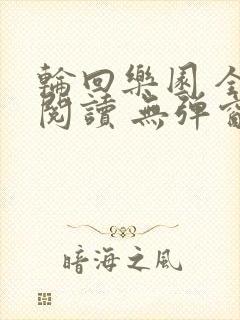 輪回樂園
閱讀 無彈
暗海之風